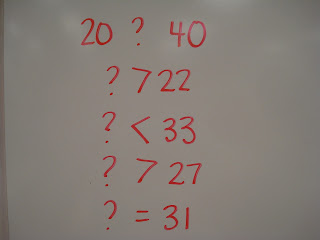 20 ? 40
? > 22
? < 33
? > 27
? = 31